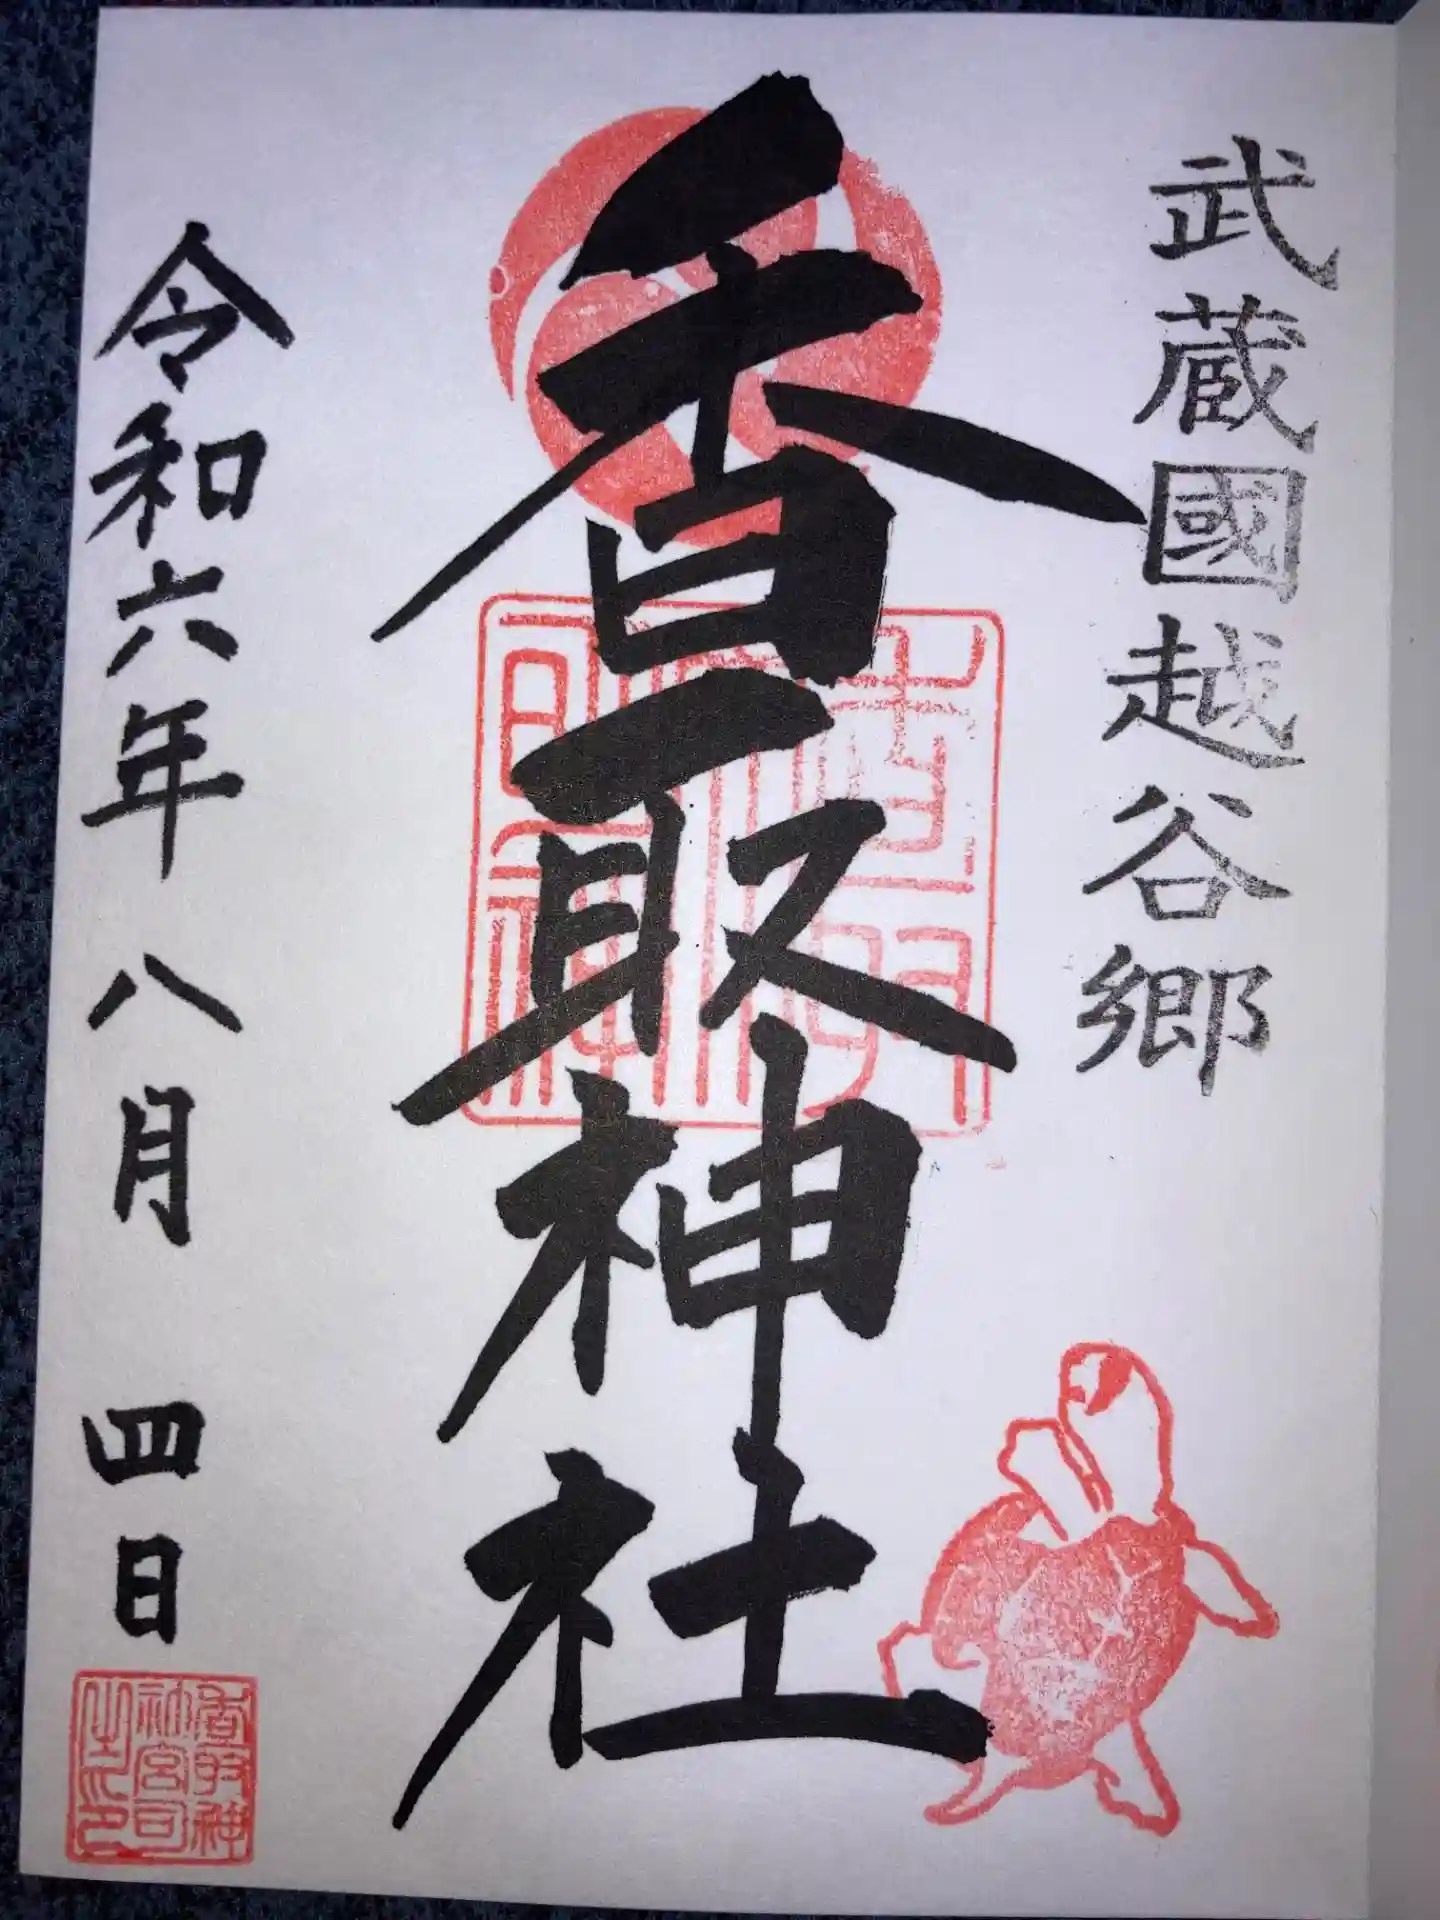 武蔵國越谷郷
香取神社
令和六年八月四日
香取神
社宮司
之印